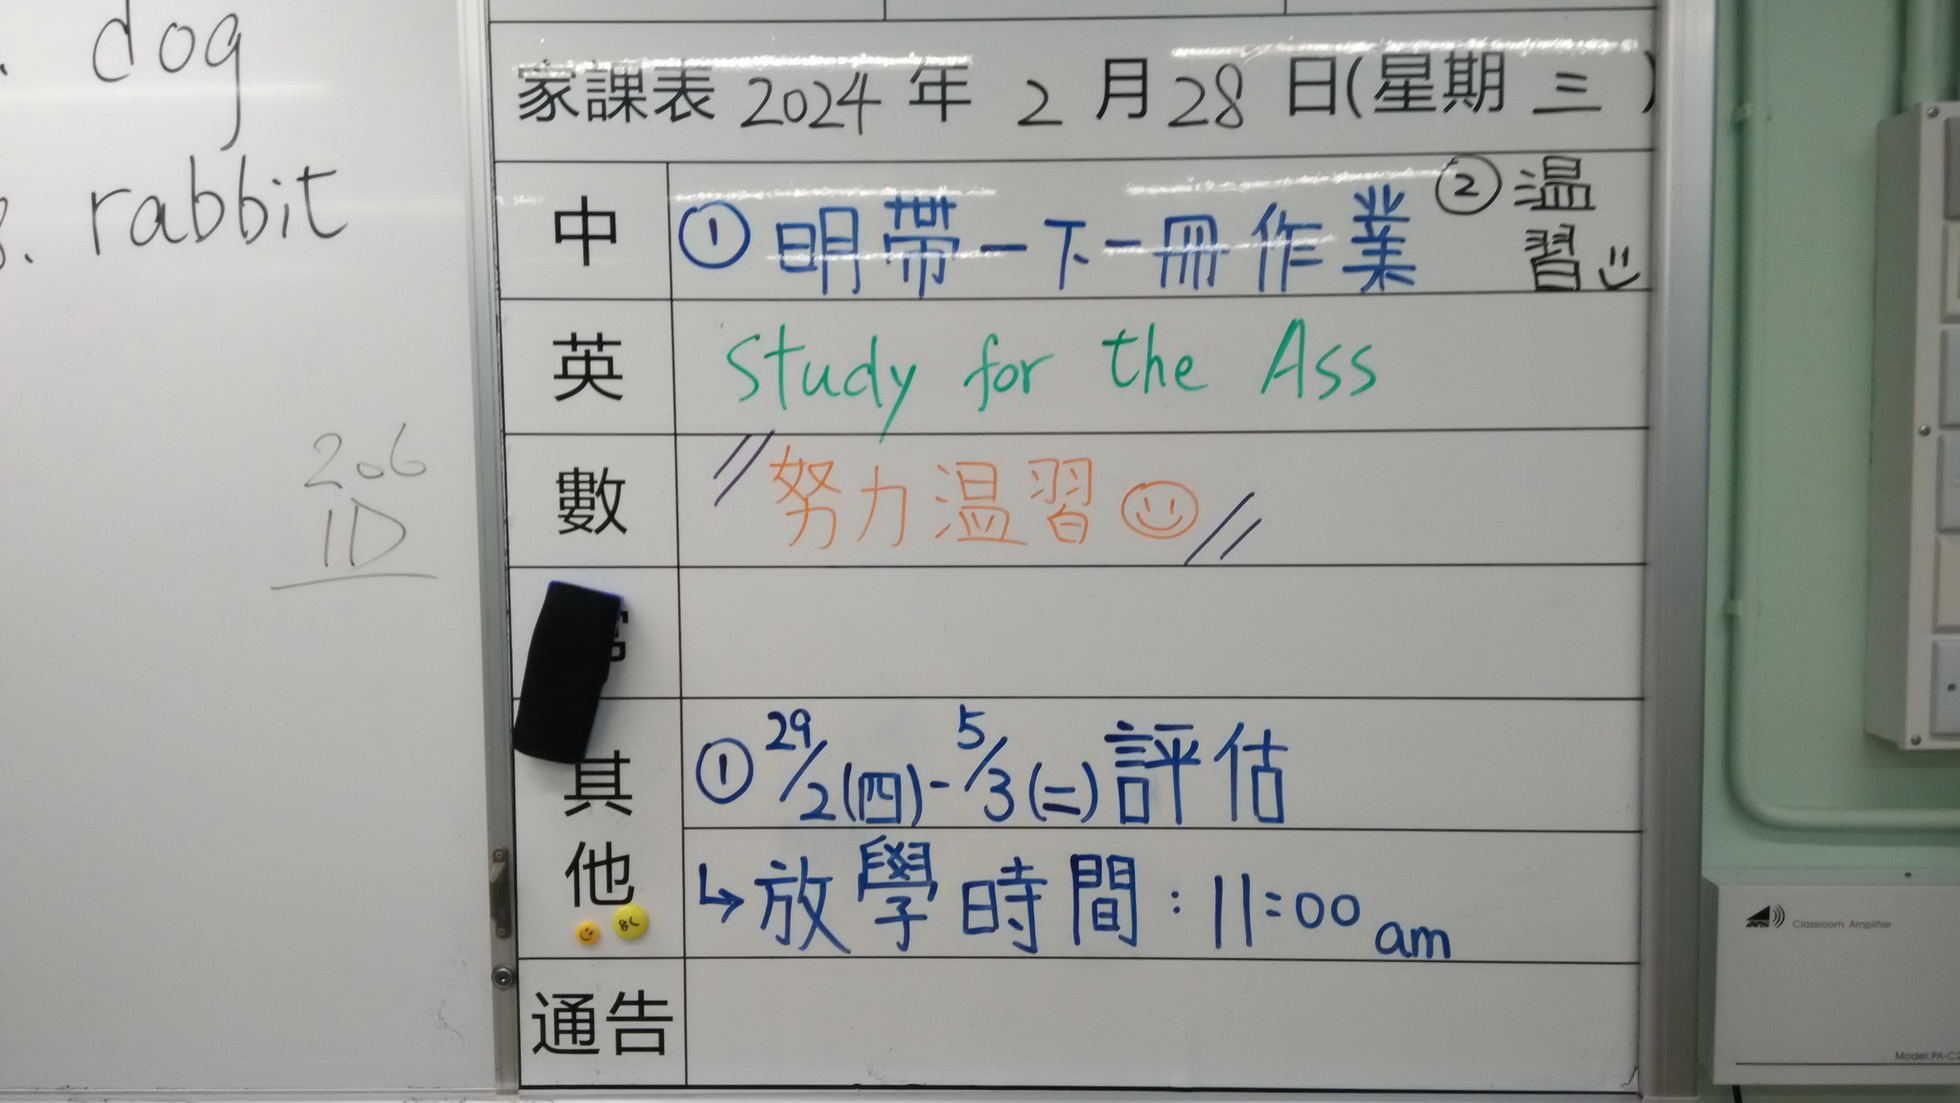 dog
rabbit
206
1D
家課表 2024 年 2 月 28 日(星期 三 )
中 ① 明帶一下一冊作業 ② 温習
英 Study for the Ass
數 努力温習
其他 ① 29/2(四)-5/3(二)評估
↳放學時間:11:00am
通告
Classroom Amplifier